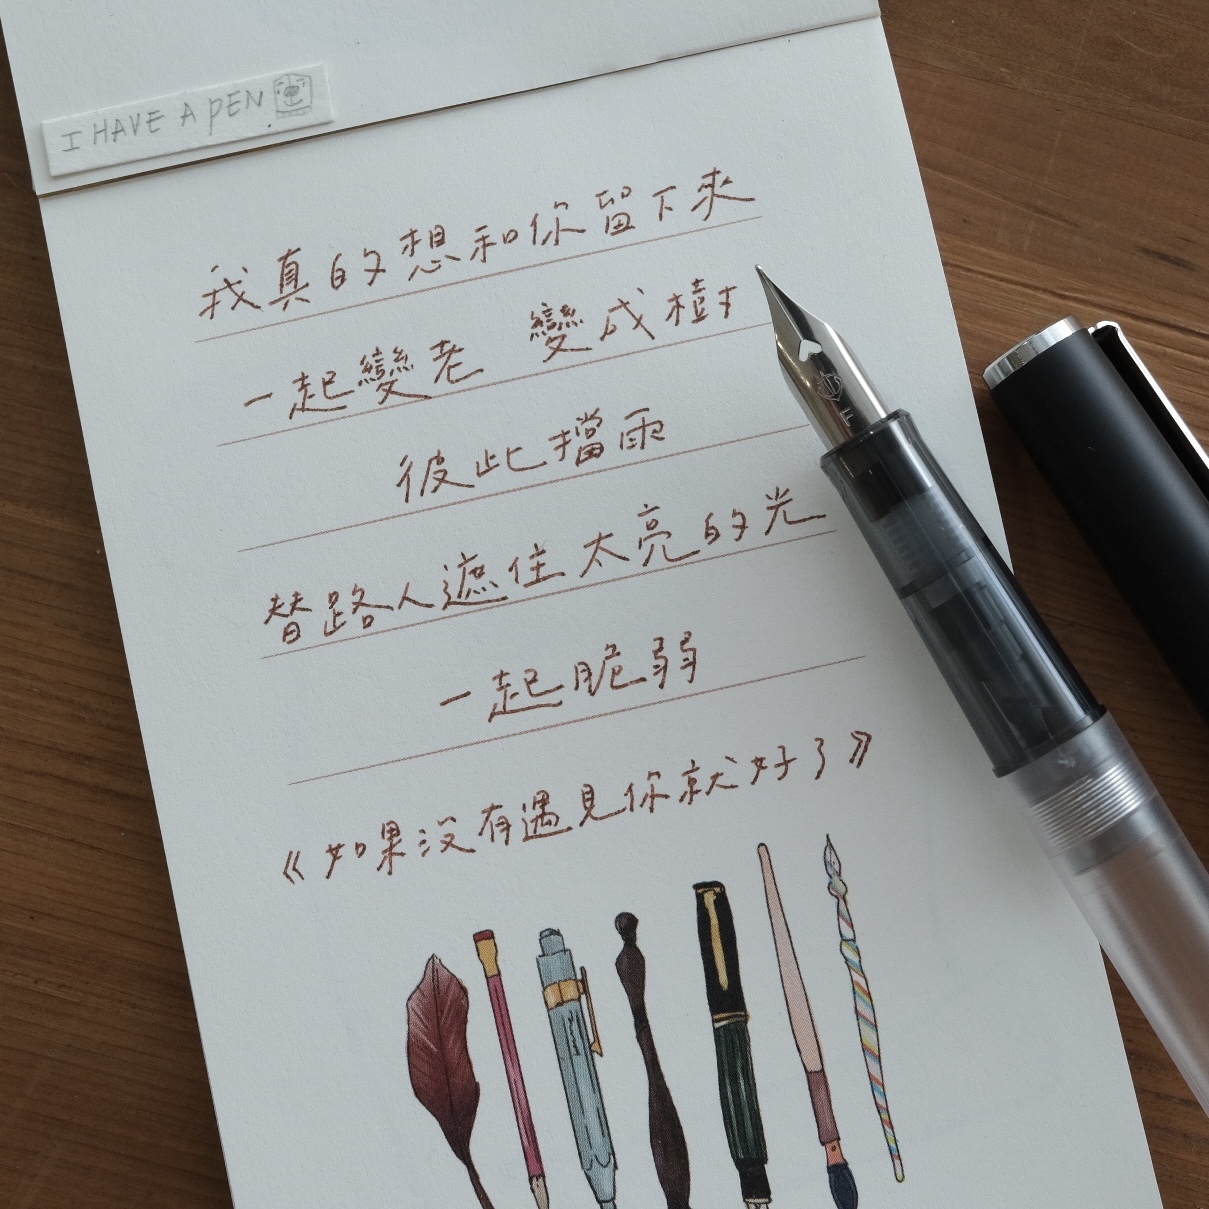 I HAVE A PEN
我真的想和你留下來
一起變老 變成樹
彼此擋雨
替路人遮住太亮的光
一起脆弱
《如果沒有遇見你就好了》
F